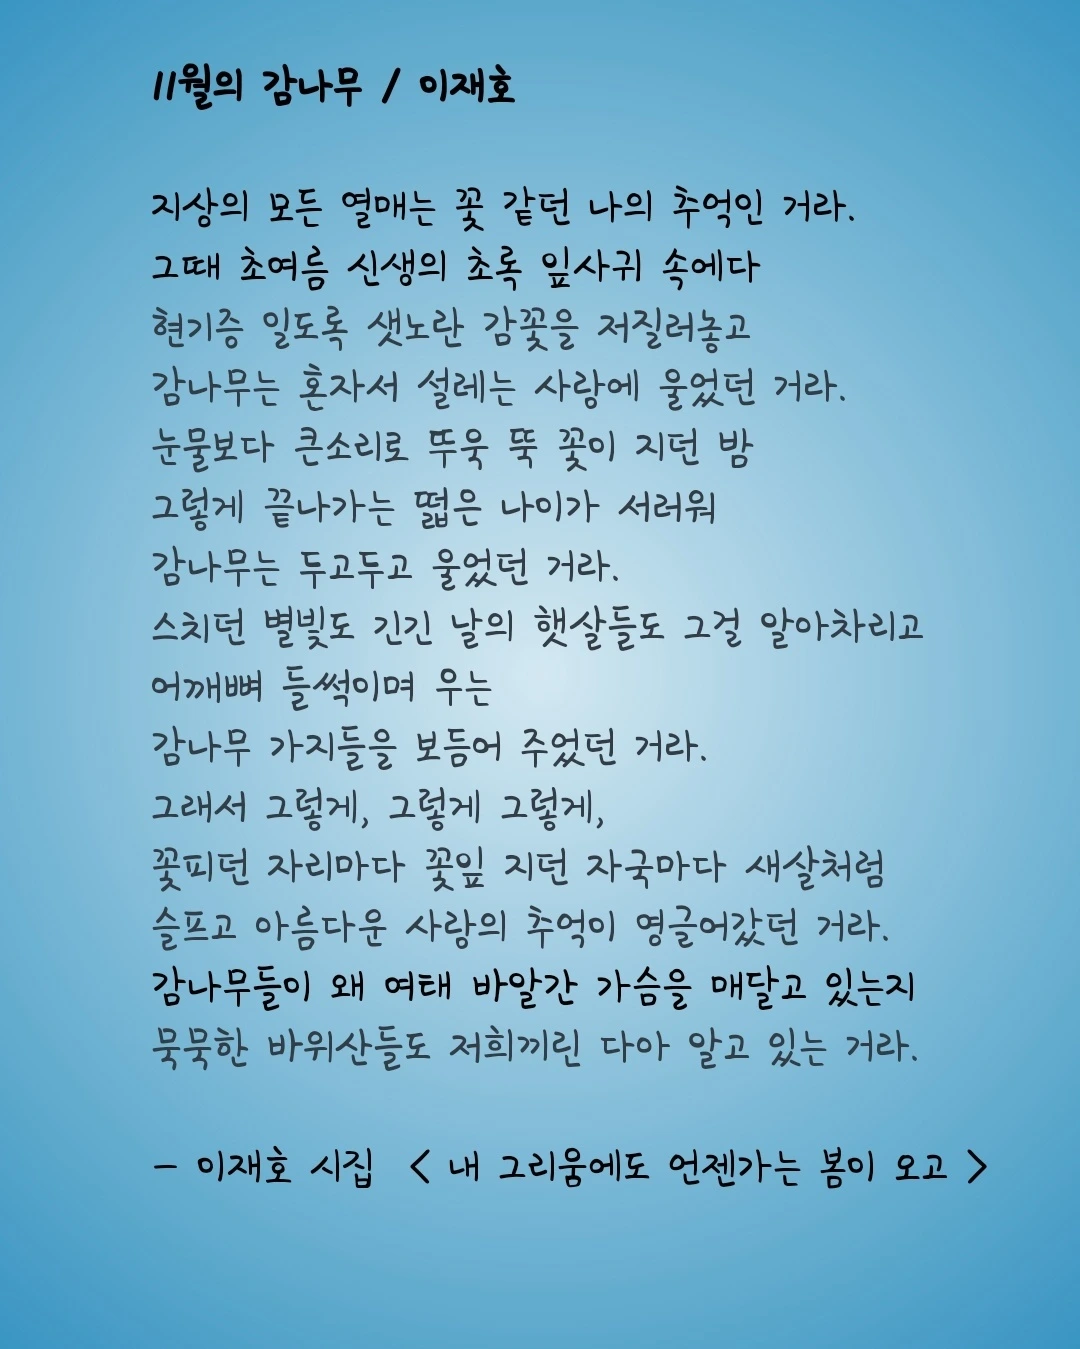 11월의 감나무 / 이재호
지상의 모든 열매는 꽃 같던 나의 추억인 거라.
그때 초여름 신생의 초록 잎사귀 속에다
현기증 일도록 샛노란 감꽃을 저질러놓고
감나무는 혼자서 설레는 사랑에 울었던 거라.
눈물보다 큰소리로 뚜욱 뚝 꽃이 지던 밤
그렇게 끝나가는 떫은 나이가 서러워
감나무는 두고두고 울었던 거라.
스치던 별빛도 긴긴 날의 햇살들도 그걸 알아차리고
어깨뼈 들썩이며 우는
감나무 가지들을 보듬어 주었던 거라.
그래서 그렇게, 그렇게 그렇게,
꽃피던 자리마다 꽃잎 지던 자국마다 새살처럼
슬프고 아름다운 사랑의 추억이 영글어갔던 거라.
감나무들이 왜 여태 바알간 가슴을 매달고 있는지
묵묵한 바위산들도 저희끼린 다아 알고 있는 거라.
- 이재호 시집 < 내 그리움에도 언젠가는 봄이 오고 >